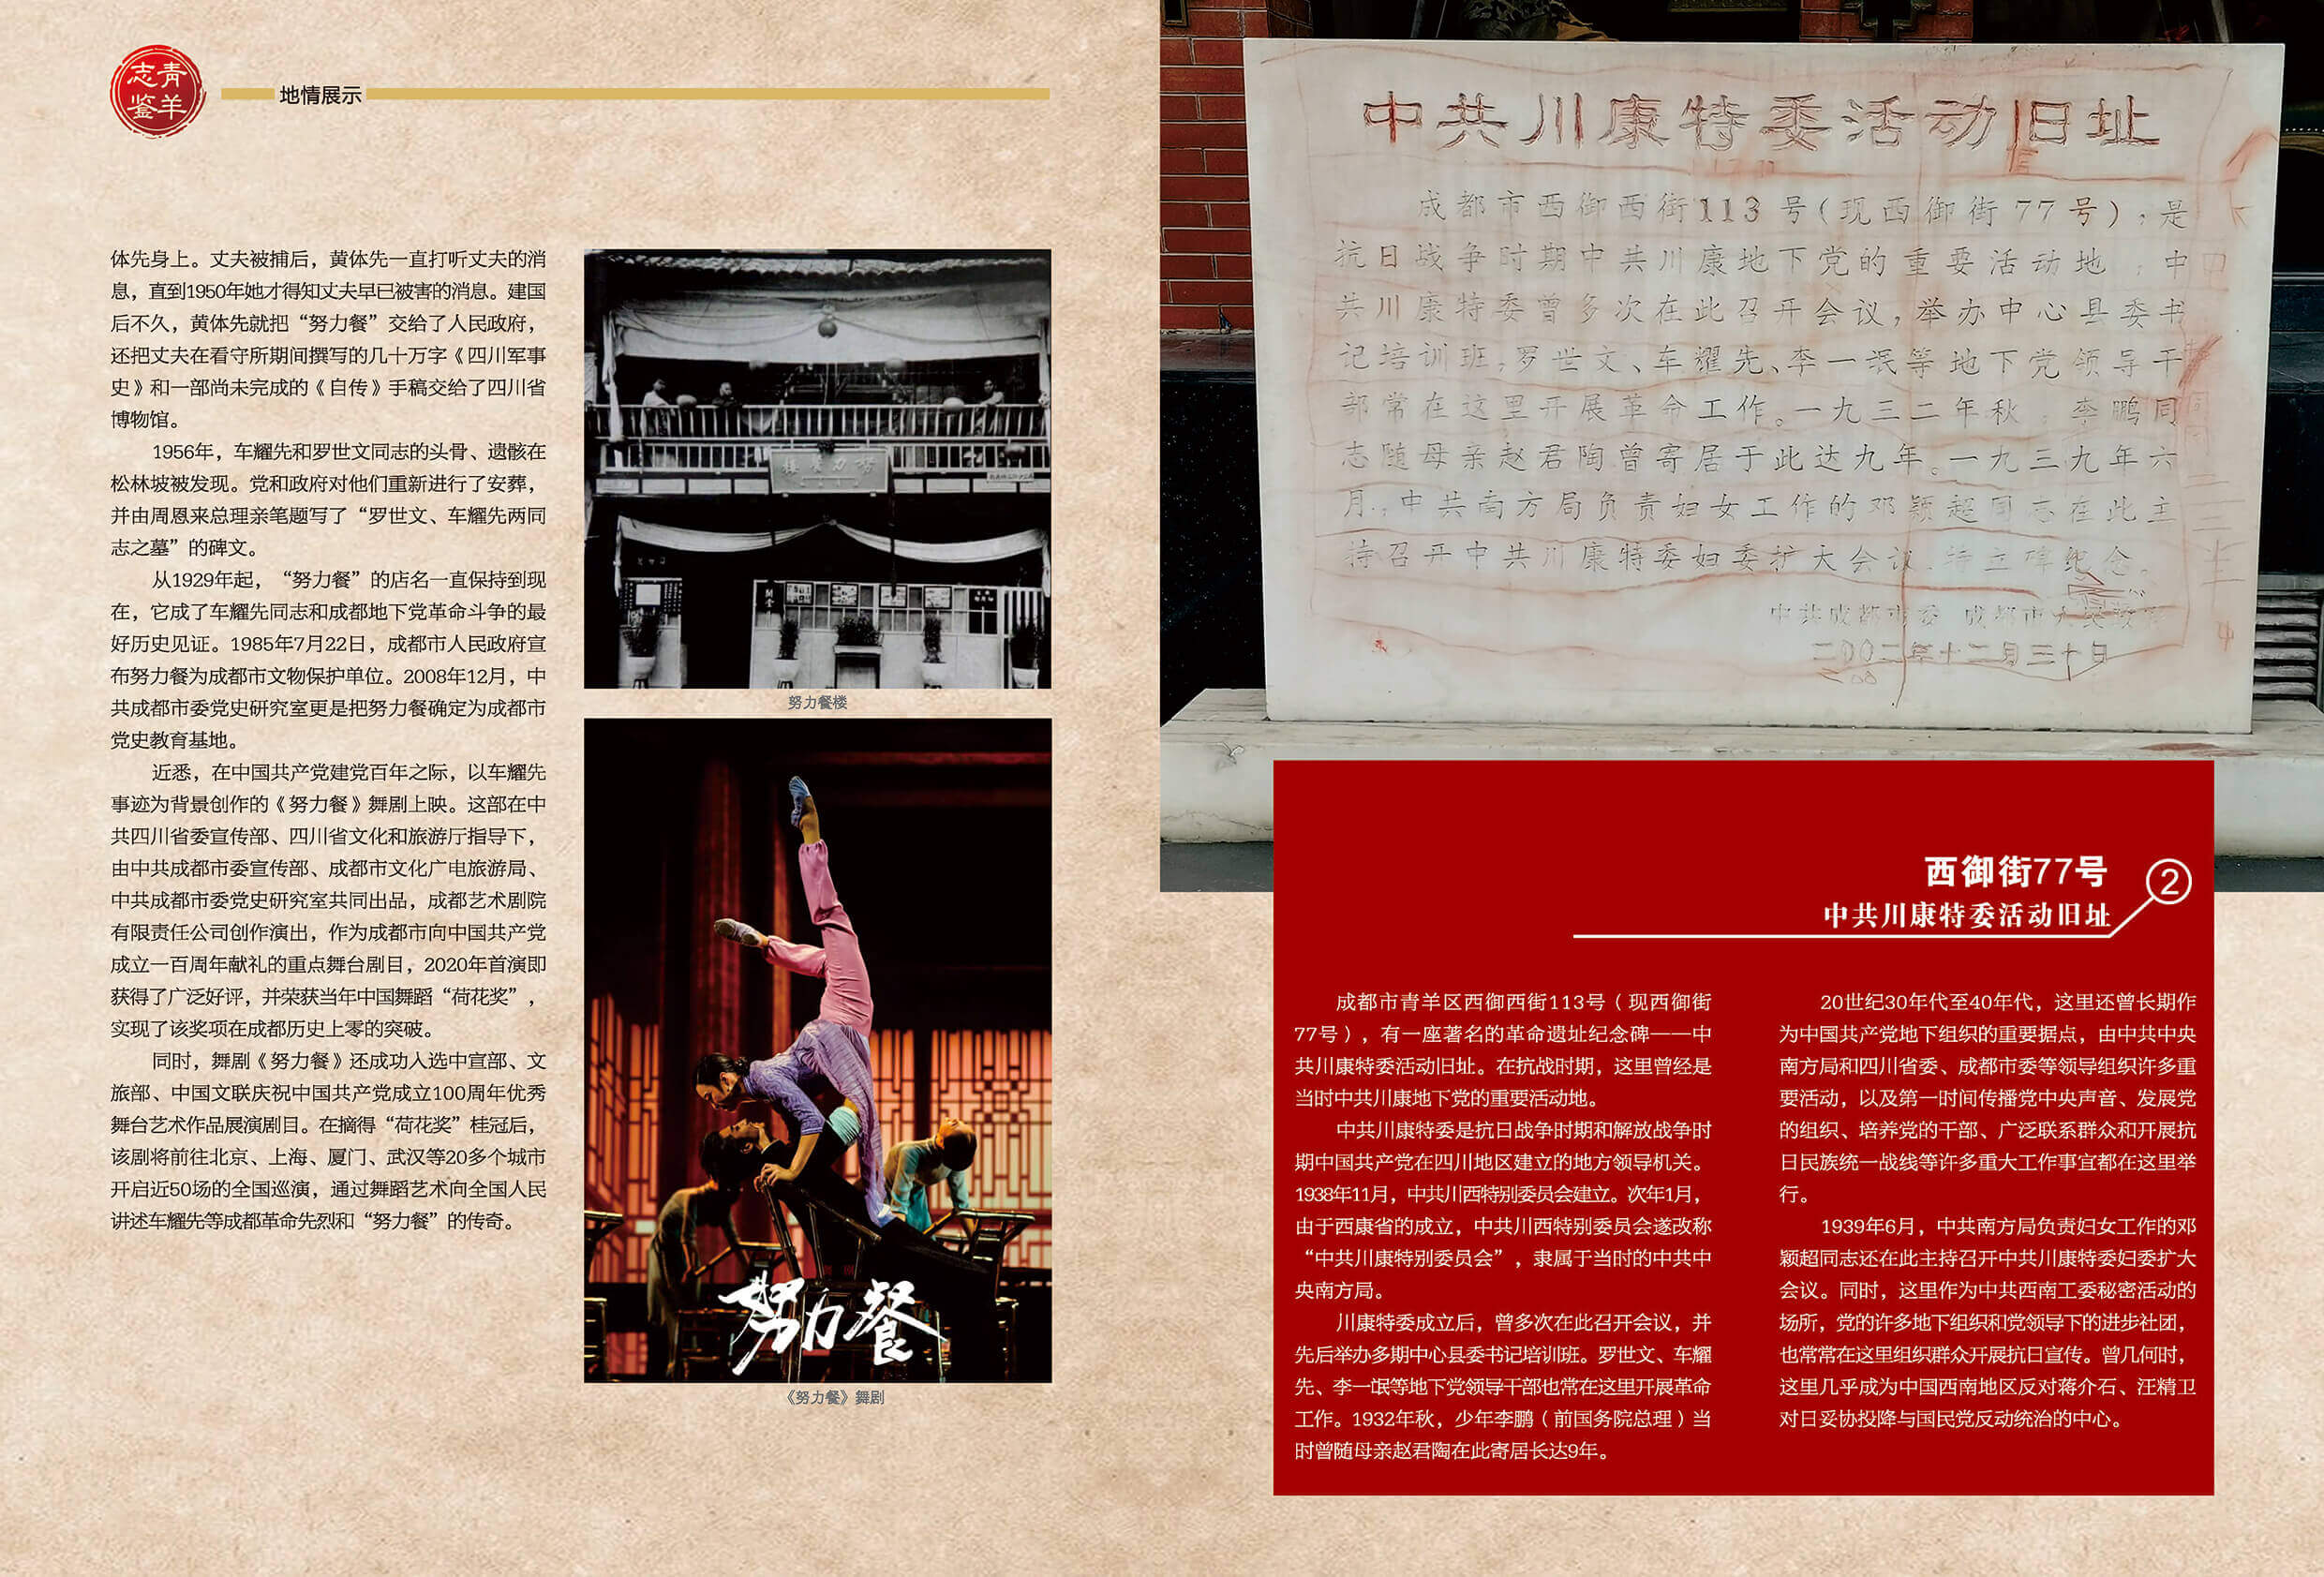 青羊
志鉴
地情展示
体先身上。丈夫被捕后，黄体先一直打听丈夫的消
息，直到1950年她才得知丈夫早已被害的消息。建国
后不久，黄体先就把“努力餐”交给了人民政府，
还把丈夫在看守所期间撰写的几十万字《四川军事
史》和一部尚未完成的《自传》手稿交给了四川省
博物馆。
1956年，车耀先和罗世文同志的头骨、遗骸在
松林坡被发现。党和政府对他们重新进行了安葬，
并由周恩来总理亲笔题写了“罗世文、车耀先两同
志之墓”的碑文。
从1929年起，“努力餐”的店名一直保持到现
在，它成了车耀先同志和成都地下党革命斗争的最
好历史见证。1985年7月22日，成都市人民政府宣
布努力餐为成都市文物保护单位。2008年12月，中
共成都市委党史研究室更是把努力餐确定为成都市
党史教育基地。
近悉，在中国共产党建党百年之际，以车耀先
事迹为背景创作的《努力餐》舞剧上映。这部在中
共四川省委宣传部、四川省文化和旅游厅指导下，
由中共成都市委宣传部、成都市文化广电旅游局、
中共成都市委党史研究室共同出品，成都艺术剧院
有限责任公司创作演出，作为成都市向中国共产党
成立一百周年献礼的重点舞台剧目，2020年首演即
获得了广泛好评，并荣获当年中国舞蹈“荷花奖”，
实现了该奖项在成都历史上零的突破。
同时，舞剧《努力餐》还成功入选中宣部、文
旅部、中国文联庆祝中国共产党成立100周年优秀
舞台艺术作品展演剧目。在摘得“荷花奖”桂冠后，
该剧将前往北京、上海、厦门、武汉等20多个城市
开启近50场的全国巡演，通过舞蹈艺术向全国人民
讲述车耀先等成都革命先烈和“努力餐”的传奇。
楼餐力努
努力餐楼
努力餐
《努力餐》舞剧
中共川康特委活动旧址
成都市西御西街113号(现西御街77号)，是
抗日战争时期中共川康地下党的重要活动地，中
共川康特委曾多次在此召开会议，举办中心县委书
记培训班，罗世文、车耀先、李一氓等地下党领导干
部常在这里开展革命工作。一九三二年秋，李鹏同
志随母亲赵君陶曾寄居于此达九年。一九三九年六
月，中共南方局负责妇女工作的邓颖超同志在此主
持召开中共川康特委妇委扩大会议，特立碑纪念。
中共成都市委 成都市人民政府
二00二年十二月三十日
西御街77号
2
中共川康特委活动旧址
成都市青羊区西御西街113号（现西御街
77号），有一座著名的革命遗址纪念碑——中
共川康特委活动旧址。在抗战时期，这里曾经是
当时中共川康地下党的重要活动地。
中共川康特委是抗日战争时期和解放战争时
期中国共产党在四川地区建立的地方领导机关。
1938年11月，中共川西特别委员会建立。次年1月，
由于西康省的成立，中共川西特别委员会遂改称
“中共川康特别委员会”，隶属于当时的中共中
央南方局。
川康特委成立后，曾多次在此召开会议，并
先后举办多期中心县委书记培训班。罗世文、车耀
先、李一氓等地下党领导干部也常在这里开展革命
工作。1932年秋，少年李鹏（前国务院总理）当
时曾随母亲赵君陶在此寄居长达9年。
20世纪30年代至40年代，这里还曾长期作
为中国共产党地下组织的重要据点，由中共中央
南方局和四川省委、成都市委等领导组织许多重
要活动，以及第一时间传播党中央声音、发展党
的组织、培养党的干部、广泛联系群众和开展抗
日民族统一战线等许多重大工作事宜都在这里举
行。
1939年6月，中共南方局负责妇女工作的邓
颖超同志还在此主持召开中共川康特委妇委扩大
会议。同时，这里作为中共西南工委秘密活动的
场所，党的许多地下组织和党领导下的进步社团，
也常常在这里组织群众开展抗日宣传。曾几何时，
这里几乎成为中国西南地区反对蒋介石、汪精卫
对日妥协投降与国民党反动统治的中心。